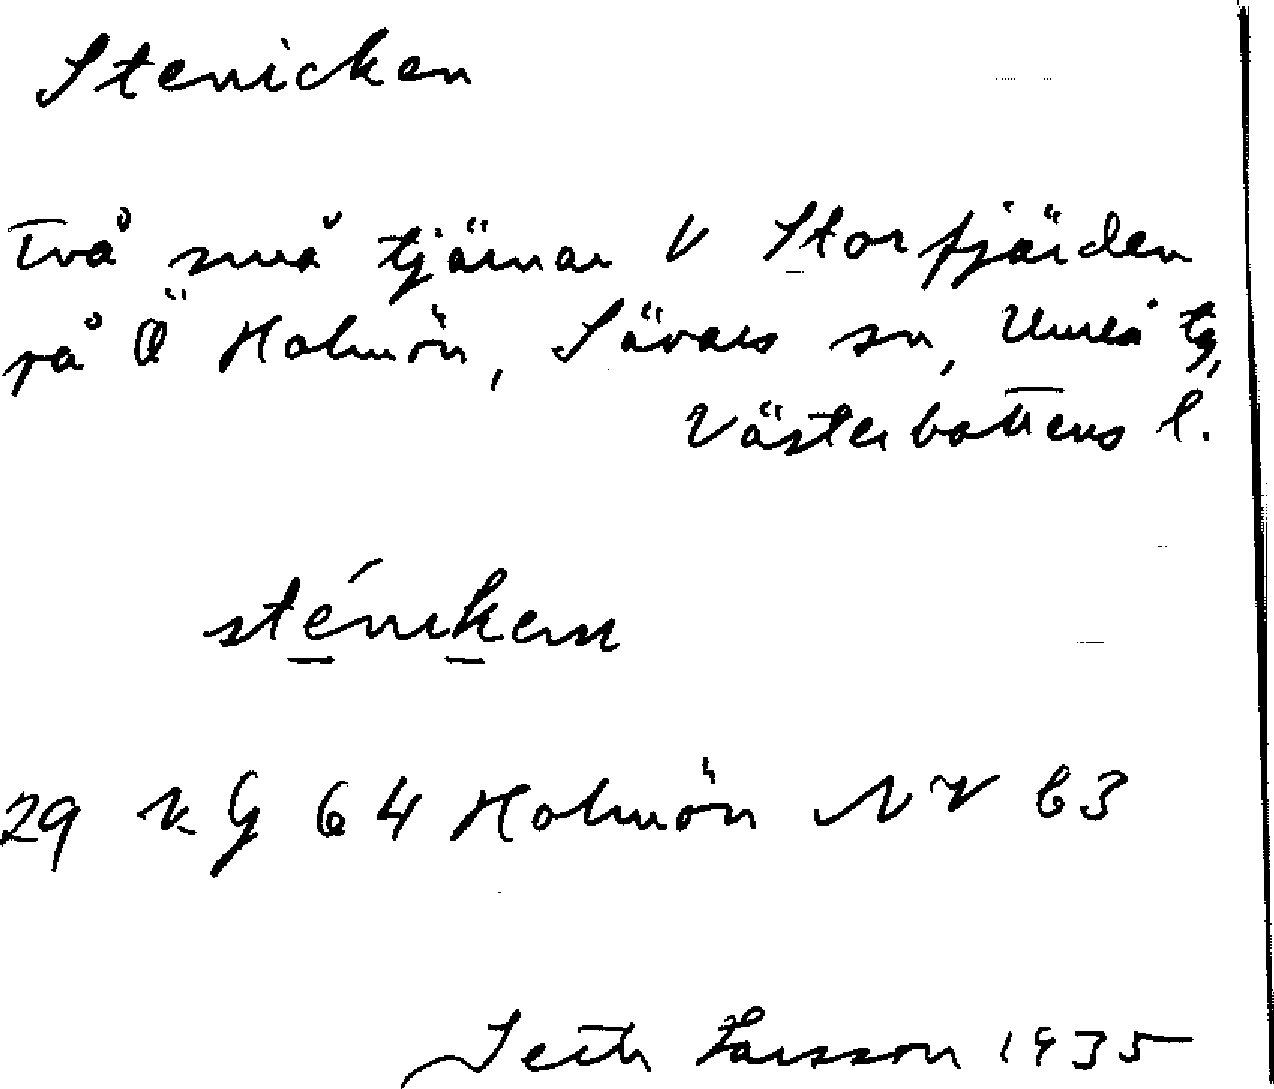 Stenicken
Två små tjärnar V Storfjärden
på Ö Holmön, Sävars sn, Umeå tg,
Västerbottens l.
sténikenn
29 KG 64 Holmön NV 63
Seth Larsson 1935